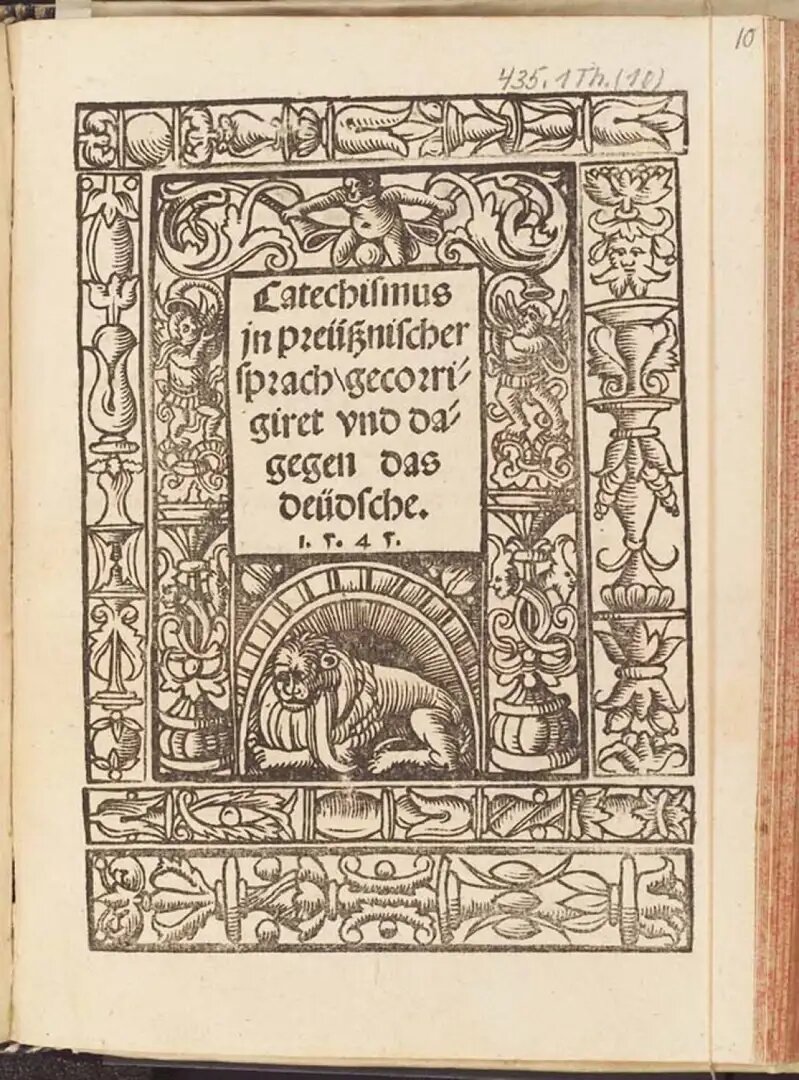 10
435. 1 Th. (10)
Catechiſmus
jn preüſzniſcher
ſprach\gecorri⸗
giret vnd da⸗
gegen das
deüdſche.
1. 5. 4 5.